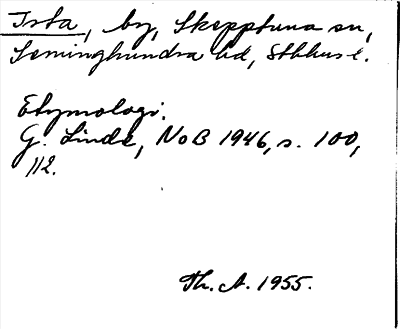 Ista, by, Skepptuna sn,
Seminghundra hd, Sthlms l.
Etymologi.
G. Linde, NoB 1946, s. 100,
112.
Th. A. 1955.